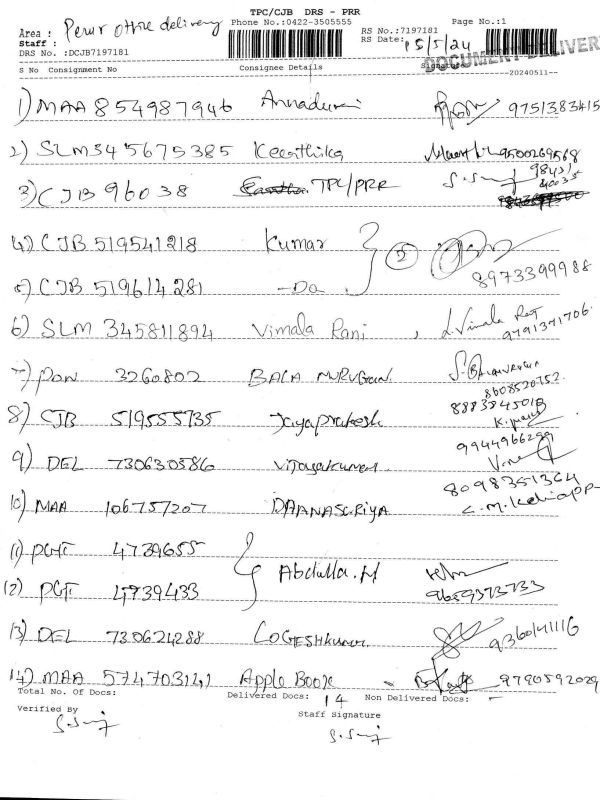 TPC/CJB DRS - PRR
Area : Perur office delivery Phone No.:0422-3505555 Page No.:1
Staff : RS No.:7197181
DRS No. :DCJB7197181 RS Date: 15/5/24 DOCUMENT DELIVER
S No Consignment No Consignee Details Signature --20240511--
1) MAA 854987946 Annadurai 9751383415
2) SLM 345675385 Keerthika 9500269568
3) CJB 96038 TPC/PRR S.S 98431 40035
4) CJB 519541218 Kumar 2
5) CJB 519614281 -Do 8973399988
6) SLM 345811894 Vimala Rani , L. Vimala Rani 9791371706
7) PON 3260802 BALA MURUGAN S. BALAMURUGAN 8608520752
8) CJB 519555735 Jayaprakash 8883845018
9) DEL 730630586 Vijayakumar 9944966299
10) MAA 106757207 DAANASURIYA 8098351364
11) PGT 4739655 Abdulla.M
12) PGT 4939433 9659373733
13) DEL 730624288 LOGESHkumar 9360141116
14) MAA 574703141 Apple Book - 9790592029
Total No. Of Docs: Delivered Docs: 14 Non Delivered Docs: -
Verified By Staff Signature